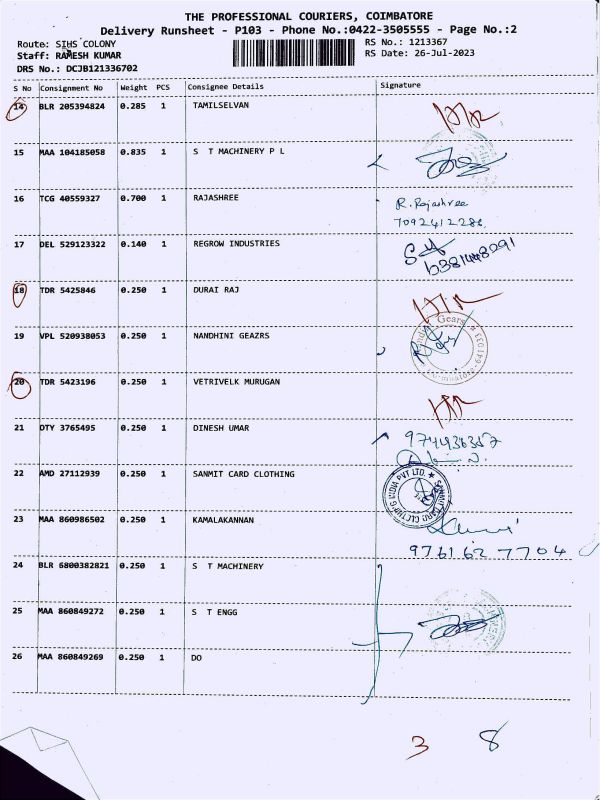 THE PROFESSIONAL COURIERS, COIMBATORE
Delivery Runsheet - P103 - Phone No.:0422-3505555 - Page No.:2
Route: SIHS COLONY
RS No.: 1213367
Staff: RAMESH KUMAR
RS Date: 26-Jul-2023
DRS No.: DCJB121336702
S No Consignment No Weight PCS Consignee Details Signature
14 BLR 205394824 0.285 1 TAMILSELVAN
15 MAA 104185058 0.835 1 S T MACHINERY P L
16 TCG 40559327 0.700 1 RAJASHREE R. Rajashree
7092412286
17 DEL 529123322 0.140 1 REGROW INDUSTRIES
18 TDR 5425846 0.250 1 DURAI RAJ
19 VPL 520938053 0.250 1 NANDHINI GEAZRS
20 TDR 5423196 0.250 1 VETRIVELK MURUGAN
21 DTY 3765495 0.250 1 DINESH UMAR
22 AMD 27112939 0.250 1 SANMIT CARD CLOTHING
23 MAA 860986502 0.250 1 KAMALAKANNAN
9761627704
24 BLR 6800382821 0.250 1 S T MACHINERY
25 MAA 860849272 0.250 1 S T ENGG
26 MAA 860849269 0.250 1 DO
3 8